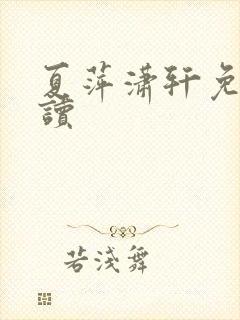 夏萍潇轩免
讀
若淺舞